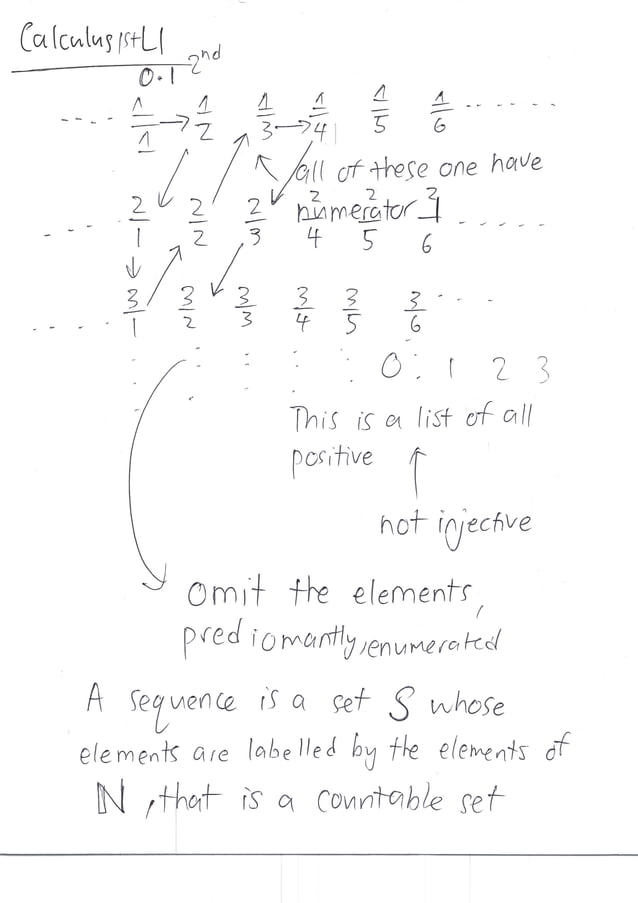 Calculus 1st L1
0.1 2nd
.... 1/1 → 1/2 1/3 → 1/4 1/5 1/6 ......
all of these one have
numerator 1
... 2/1 2/2 2/3 2/4 2/5 2/6 .....
.... 3/1 3/2 3/3 3/4 3/5 3/6 ...
0: 1 2 3
This is a list of all
positive
not injective
omit the elements,
prediomantly, enumerated
A sequence is a set S whose
elements are labelled by the elements of
ℕ, that is a countable set